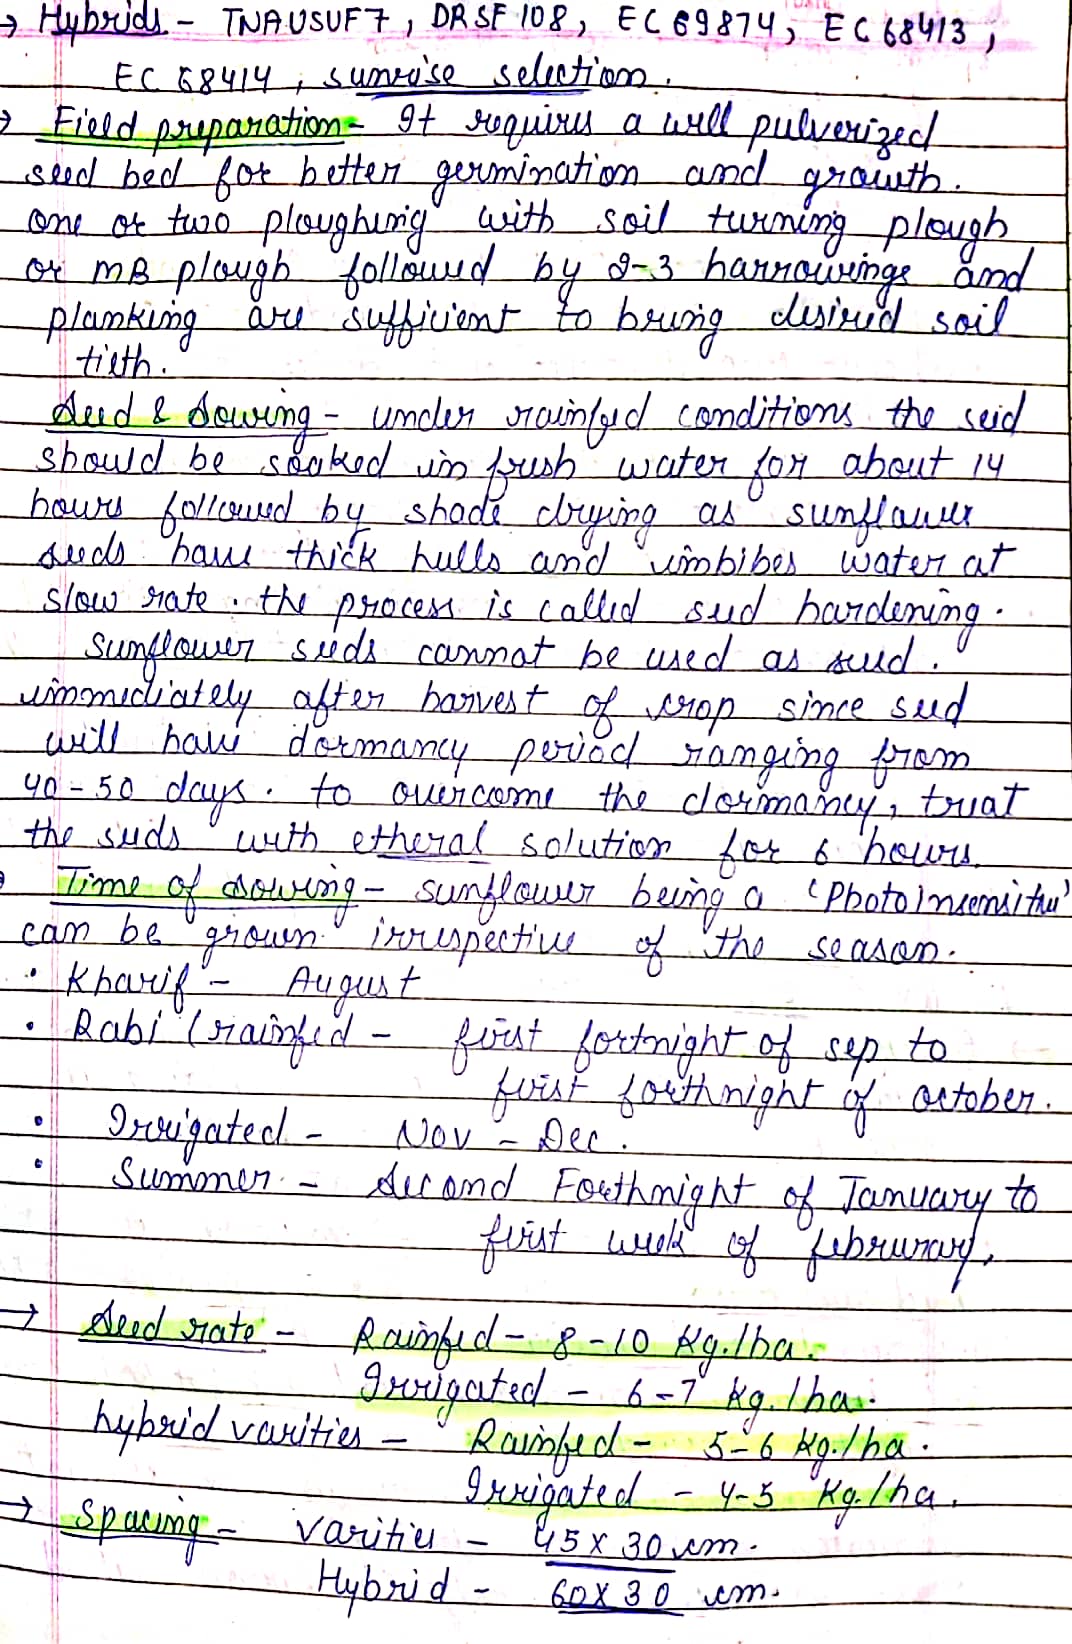 → Hybrids - TNAUSUF7, DRSF 108, EC 69874, EC 68413,
EC 68414, sunrise selection.
→ Field preparation - It requires a well pulverized
seed bed for better germination and growth.
one or two ploughing with soil turning plough
or MB plough followed by 2-3 harrowings and
planking are sufficient to bring desired soil
tilth.
Seed & Sowing - under rainfed conditions the seed
should be soaked in fresh water for about 14
hours followed by shade drying as sunflower
seeds have thick hulls and imbibes water at
slow rate. the process is called seed hardening.
Sunflower seeds cannot be used as seed.
immediately after harvest of crop since seed
will have dormancy period ranging from
40-50 days. to overcome the dormancy, treat
the seeds with etheral solution for 6 hours.
Time of sowing - sunflower being a 'Photoinsensitive'
can be grown irrespective of the season.
• Kharif - August
• Rabi (rainfed - first fortnight of sep to
first forthnight of october.
• Irrigated - Nov - Dec.
• Summer - Second Forthnight of January to
first week of februrary.
→ Seed rate - Rainfed - 8-10 Kg./ha.
Irrigated - 6-7 kg./ha.
hybrid varities - Rainfed - 5-6 Kg./ha.
Irrigated - 4-5 Kg./ha.
→ Spacing - varities - 45 x 30 cm.
Hybrid - 60 X 30 cm.